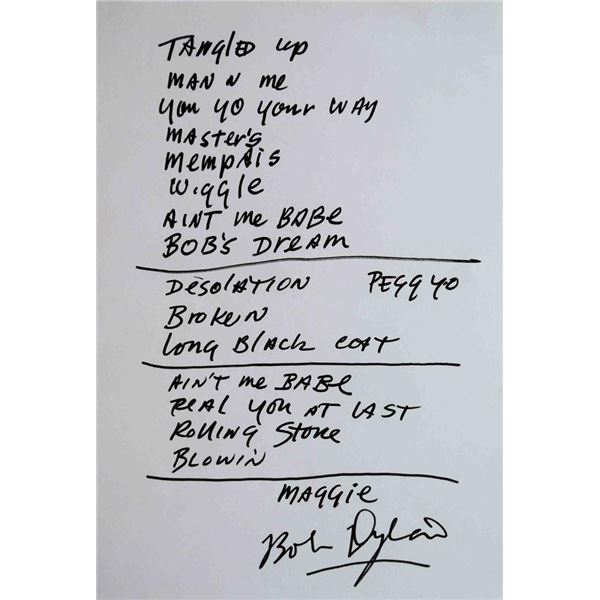 TANGLED up
MAN N me
you yo your WAY
MASter's
Mempais
Wiggle
AIN'T me BABE
BOB'S DREAM
DESOLATION PEGG yo
Broken
Long Black coat
AIN'T me BABE
REAL YOU AT LAST
Rolling Stone
BLOWIN
MAGGIE
Bob Dylan